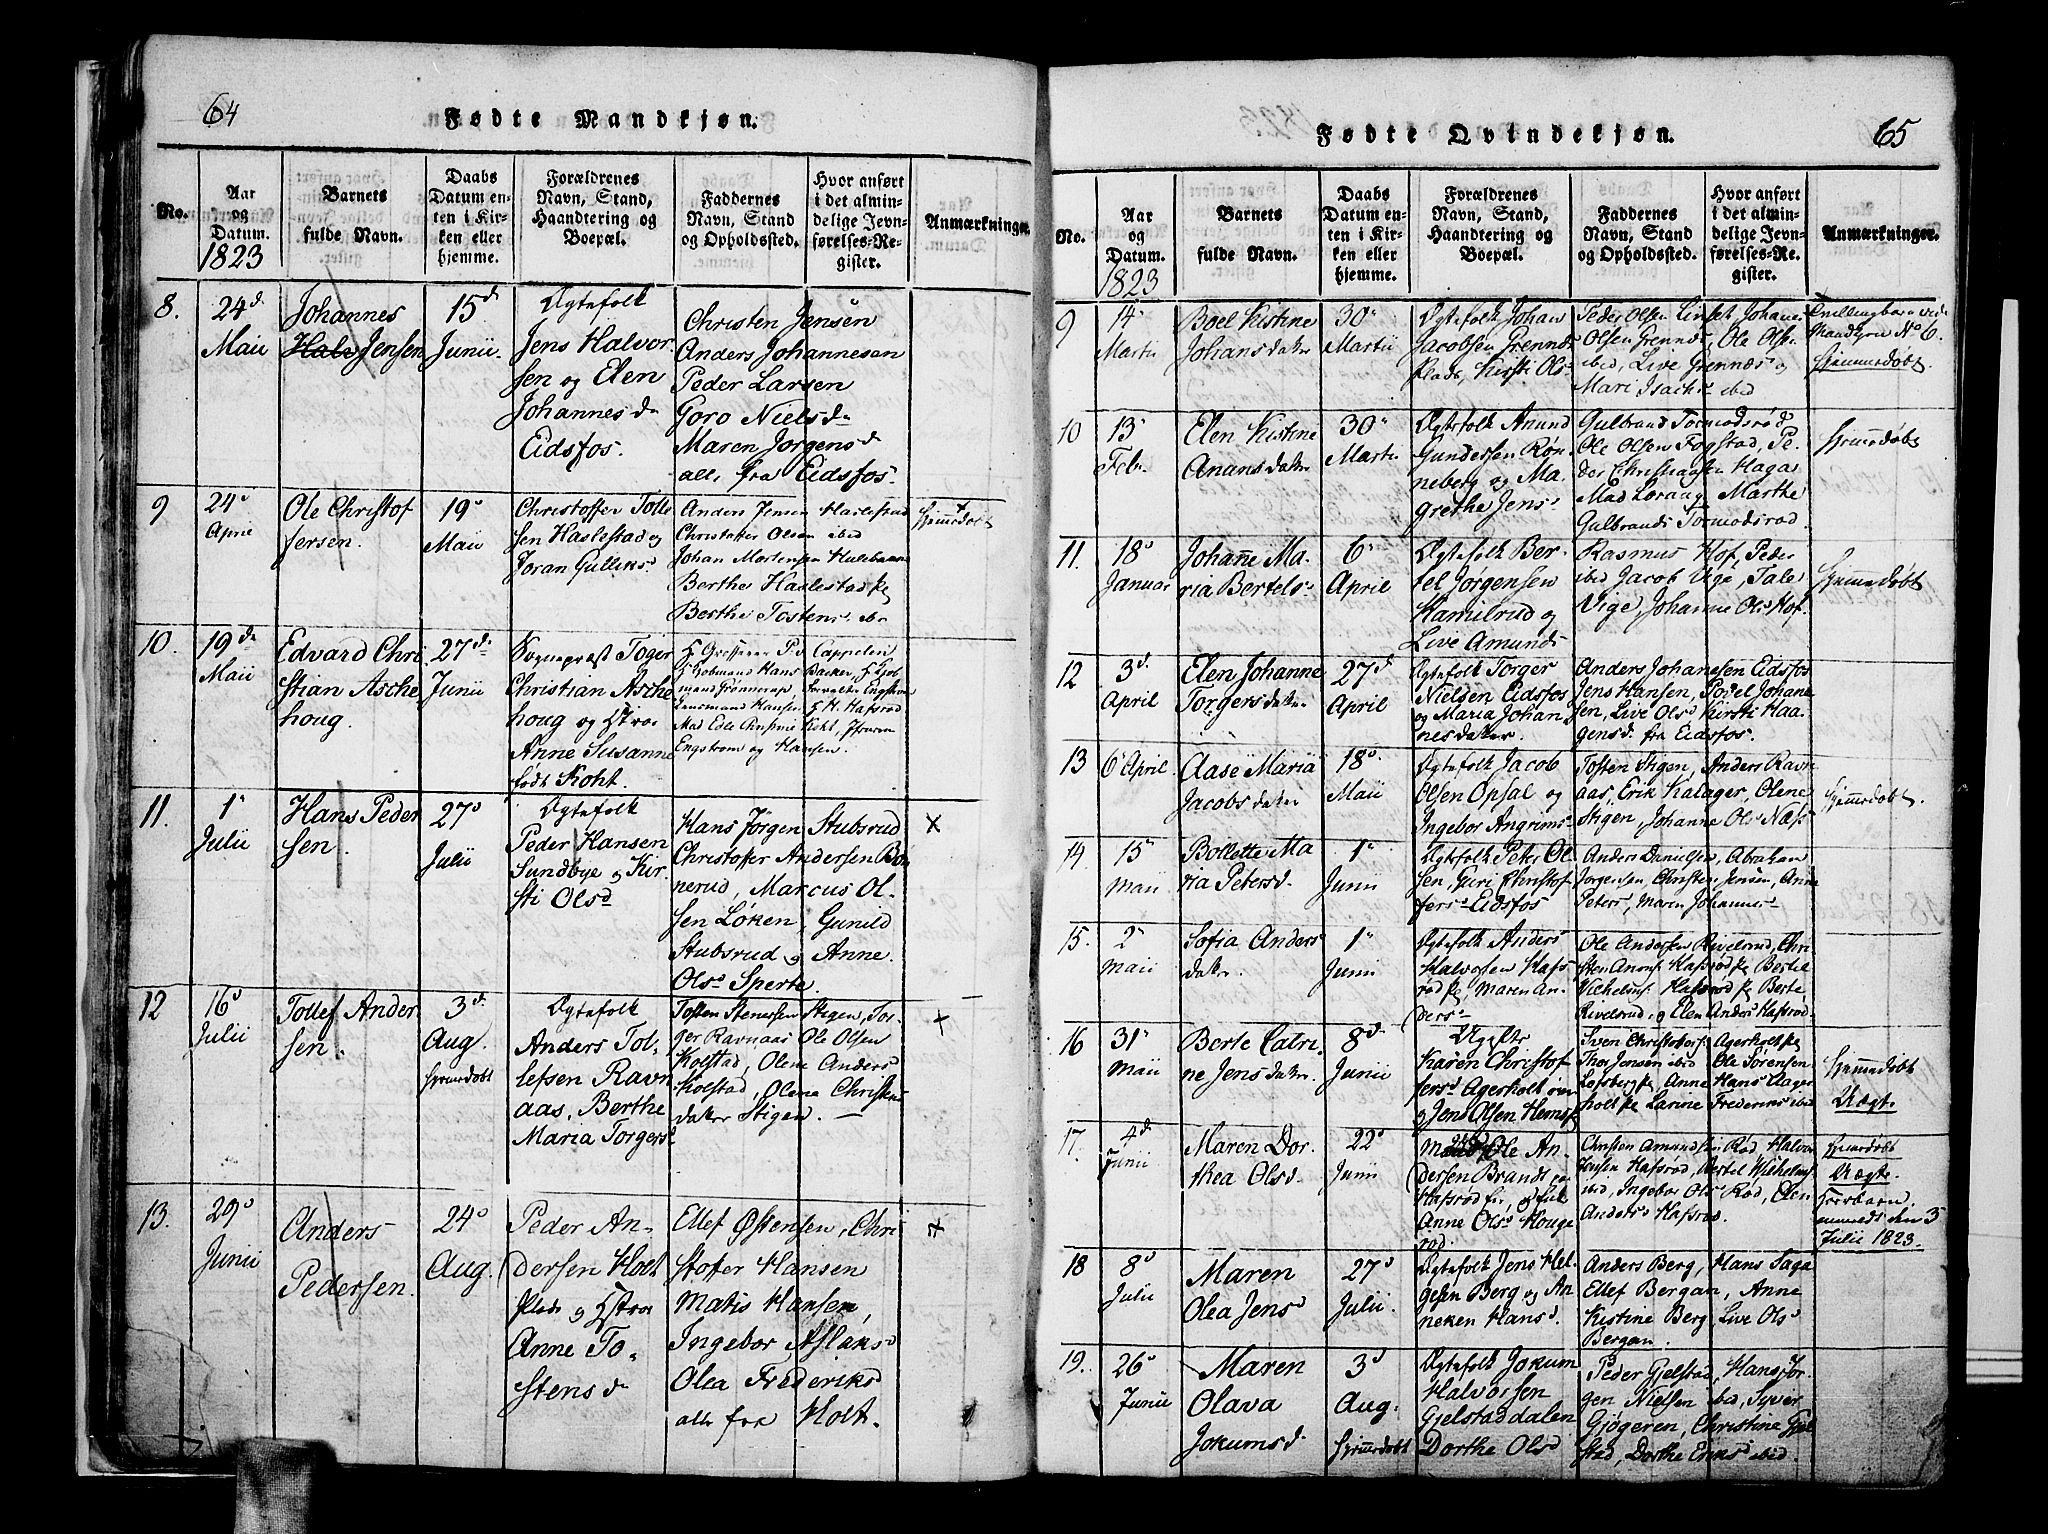 64
Fødte Mandkjøn.
No.
Aar
og
Datum.
1823
Barnets
fulde Navn.
Daabs
Datum en-
ten i Kir-
ken eller
hjemme.
Forældrenes
Navn, Stand,
Haandtering og
Boepæl.
Faddernes
Navn, Stand
og Opholdssted.
Hvor anført
i det almin-
delige Jevn-
førelses-Re-
gister.
Anmærkninger.
8.
24d
Maii
Johannes
Halv Jensen
15d
Junii.
Ægtefolk
Jens Halvor
sen og Elen
Johannesd
Eidsfos.
Christen Jensen
Anders Johannesen
Peder Larsen
Goro Nielsd
Maren Jorgensd
alle fra Eidsfos.
9
24d
April
Ole Christof
fersen.
19d
Maii
Christoffer Tolle
sen Haslestad og
Joran Gulliksd
Anders Jensen Haslestad
Christoffer Olsen ibid
Johan Mortensen
Berthe Haslestad
Berthe Tostens
Hjemmedøbt
10.
19d
Maii
Edvard Chri
stian Asche
houg.
27d
Junii
Sognepræst Toger
Christian Asche
houg og Hstroe
Anne Susanne
født Koht.
Cappelen
Hans Backer,
Lensmand Hansen H. Hafsrød
Engstrom og Hansen.
11.
1
Julii
Hans Peder
sen.
27d
Julii
Ægtefolk
Peder Hansen
Sundbye og Kir
sti Olsd
Hans Jörgen Stubsrud
Christoffer Andersen Bö
nerud, Marcus Ol
sen Löken, Gunild
Stubsrud og Anne
Olsd Sperte.
12
16d
Julii
Tollef Ander
sen.
3d
Aug.
Hjemmedøbt
Ægtefolk
Anders Tol-
lefsen Ravn
aas, Berthe
Maria Torgersd
Tosten Stenersen Stigen, Tor-
ger Ravnaas Ole Olsen
Kolstad, Olene Anders
Kolstad, Olene Christens
datter Stigen.
13.
29d
Junii
Anders
Pedersen.
24d
Aug.
Peder An-
dersen Holt
plads og Hstroe
Anne To-
stensd
Ellef Östensen, Chri
stoffer Hansen
Matis Hansen,
Ingebor Aslaksd
Olea Frederiksd
alle fra Holt.
65
Fødte Qvindekjøn.
No.
Aar
og
Datum.
1823
Barnets
fulde Navn.
Daabs
Datum en-
ten i Kir-
ken eller
hjemme.
Forældrenes
Navn, Stand,
Haandtering og
Boepæl.
Faddernes
Navn, Stand
og Opholdssted.
Hvor anført
i det almin-
delige Jevn-
førelses-Re-
gister.
Anmærkninger.
9
14
Martii
Boel Kistine
Johansdatter
30
Martii
Ægtefolk Johan
Jacobsen Grennes
plads, Kirsti Olsd
Peder Olsen Johan
Olsen Grennes, Ole Olsen
ibid, Live Grennes og
Mari Isachs ibid
Tvillingbarn vide
Mandkjøn No 6.
Hjemmedøbt
10
13
Febr.
Elen Kistine
Anansdatter
30
Martii
Ægtefolk Anund
Gundersen Røn-
neberg og Ma-
grethe Jensd
Gulbrand Tormodsrød
Ole Olsen Fogstad, Pe-
der Christiansen Haga
Mad Loraug Marthe
Gulbrands Tormodsrød.
Hjemmedøbt
11.
18d
Januar
Johanne Ma-
ria Bertels
6
April
Ægtefolk Ber-
tel Jørgensen
Kamilrud og
Live Amunds
Rasmus Hof, Peder
ibid Jacob Vige, Tale
Vige, Johanne Olsd Hof.
Hjemmedøbt
12
3d
April
Elen Johanne
Torgersdatter
27d
April
Ægtefolk Torger
Nielsen Eidsfos
og Maria Johan
nesdatter.
Anders Johanesen Eidsfos
Jens Hansen, Povel Johane
sen, Live Olsd Kirsti Haa-
gensd. fra Eidsfos.
13
6 April
Aase Maria
Jacobsdatter
18d
Maii
Ægtefolk Jacob
Olsen Opsal og
Ingebor Angrims
Tosten Stigen, Anders Ravn
aas, Erik Kalager, Olene
Stigen, Johanne Olsd Næss
Hjemmedøbt.
14.
15
Maii
Bollette Ma
ria Petersd.
1
Junii
Ægtefolk Peter Ol
sen, Guri Christof
fersd Eidsfos
Anders Danielsen, Abraham
Jorgensen, Christen Jensen, Anne
Peters, Maren Johannes
15.
2
Maii
Sofia Anders
datter.
1
Junii
Ægtefolk Anders
Halvorsen Hafs
rød, Maren An-
dersd
Ole Andersen Rivelsrud, Chri
sten Hafsrød Bertel
Vilhelms Hafsrød Berte
Rivelsrud, og Elen Anders Hafsrød.
16
31
Maii
Berte Catri-
ne Jensdatter.
8d
Junii
Karen Christof
fersd Agerholt
og Jens Olsen Hems
Sven Christophers Agerholt
Thor Jensen ibid Ole Sørensen
Lofsberg, Anne Hans Ager
holt Larine Frederiks ibid
Hjemmedøbt
Uægte
17.
4d
Junii
Maren Dor.
thea Olsd.
22d
Junii
Ole An-
dersen Brandt
Hafsrød og
Anne Olsd Houge
rød
Christen Amundsen Rød, Halvor
Jensen Hafsrød, Bertel Wilhelms
ibid, Ingebor Olsd Rød, Elen
Anders Hafsrød.
Hjemmedøbt
Uægte.
den 3
Julii 1823.
18
8d
Julii
Maren
Olea Jensd
27d
Julii.
Ægtefolk Jens Hel-
gesen Berg og An
neken Hansd.
Anders Berg, Hans Saga
Ellef Bergan, Anne
Kistine Berg, Live Olsd
Bergan.
19.
26d
Junii
Maren
Olava
Jokumsd.
3d
Aug.
Hjemmedøbt
Ægtefolk Jokum
Halvorsen
Gjelstaddalen
Dorthe Olsd
Peder Gjelstad, Hans Jør-
gen Nielsen ibid, Syver
Gjögeren, Christine Gjel
stad, Dorthe Eriks ibid.